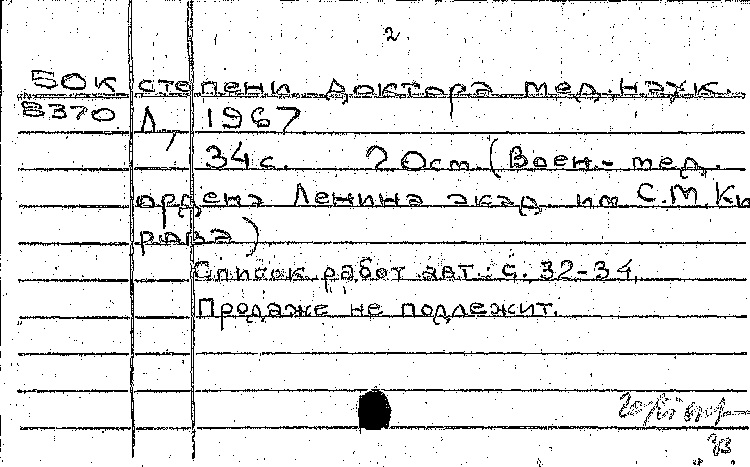 2
50К степени доктора мед. наук.
8370 Л, 1967
34 с. 20 см. (Воен.-мед.
ордена Ленина акад. им С.М. Ки
рова)
Список работ авт.: с. 32-34.
Продаже не подлежит.